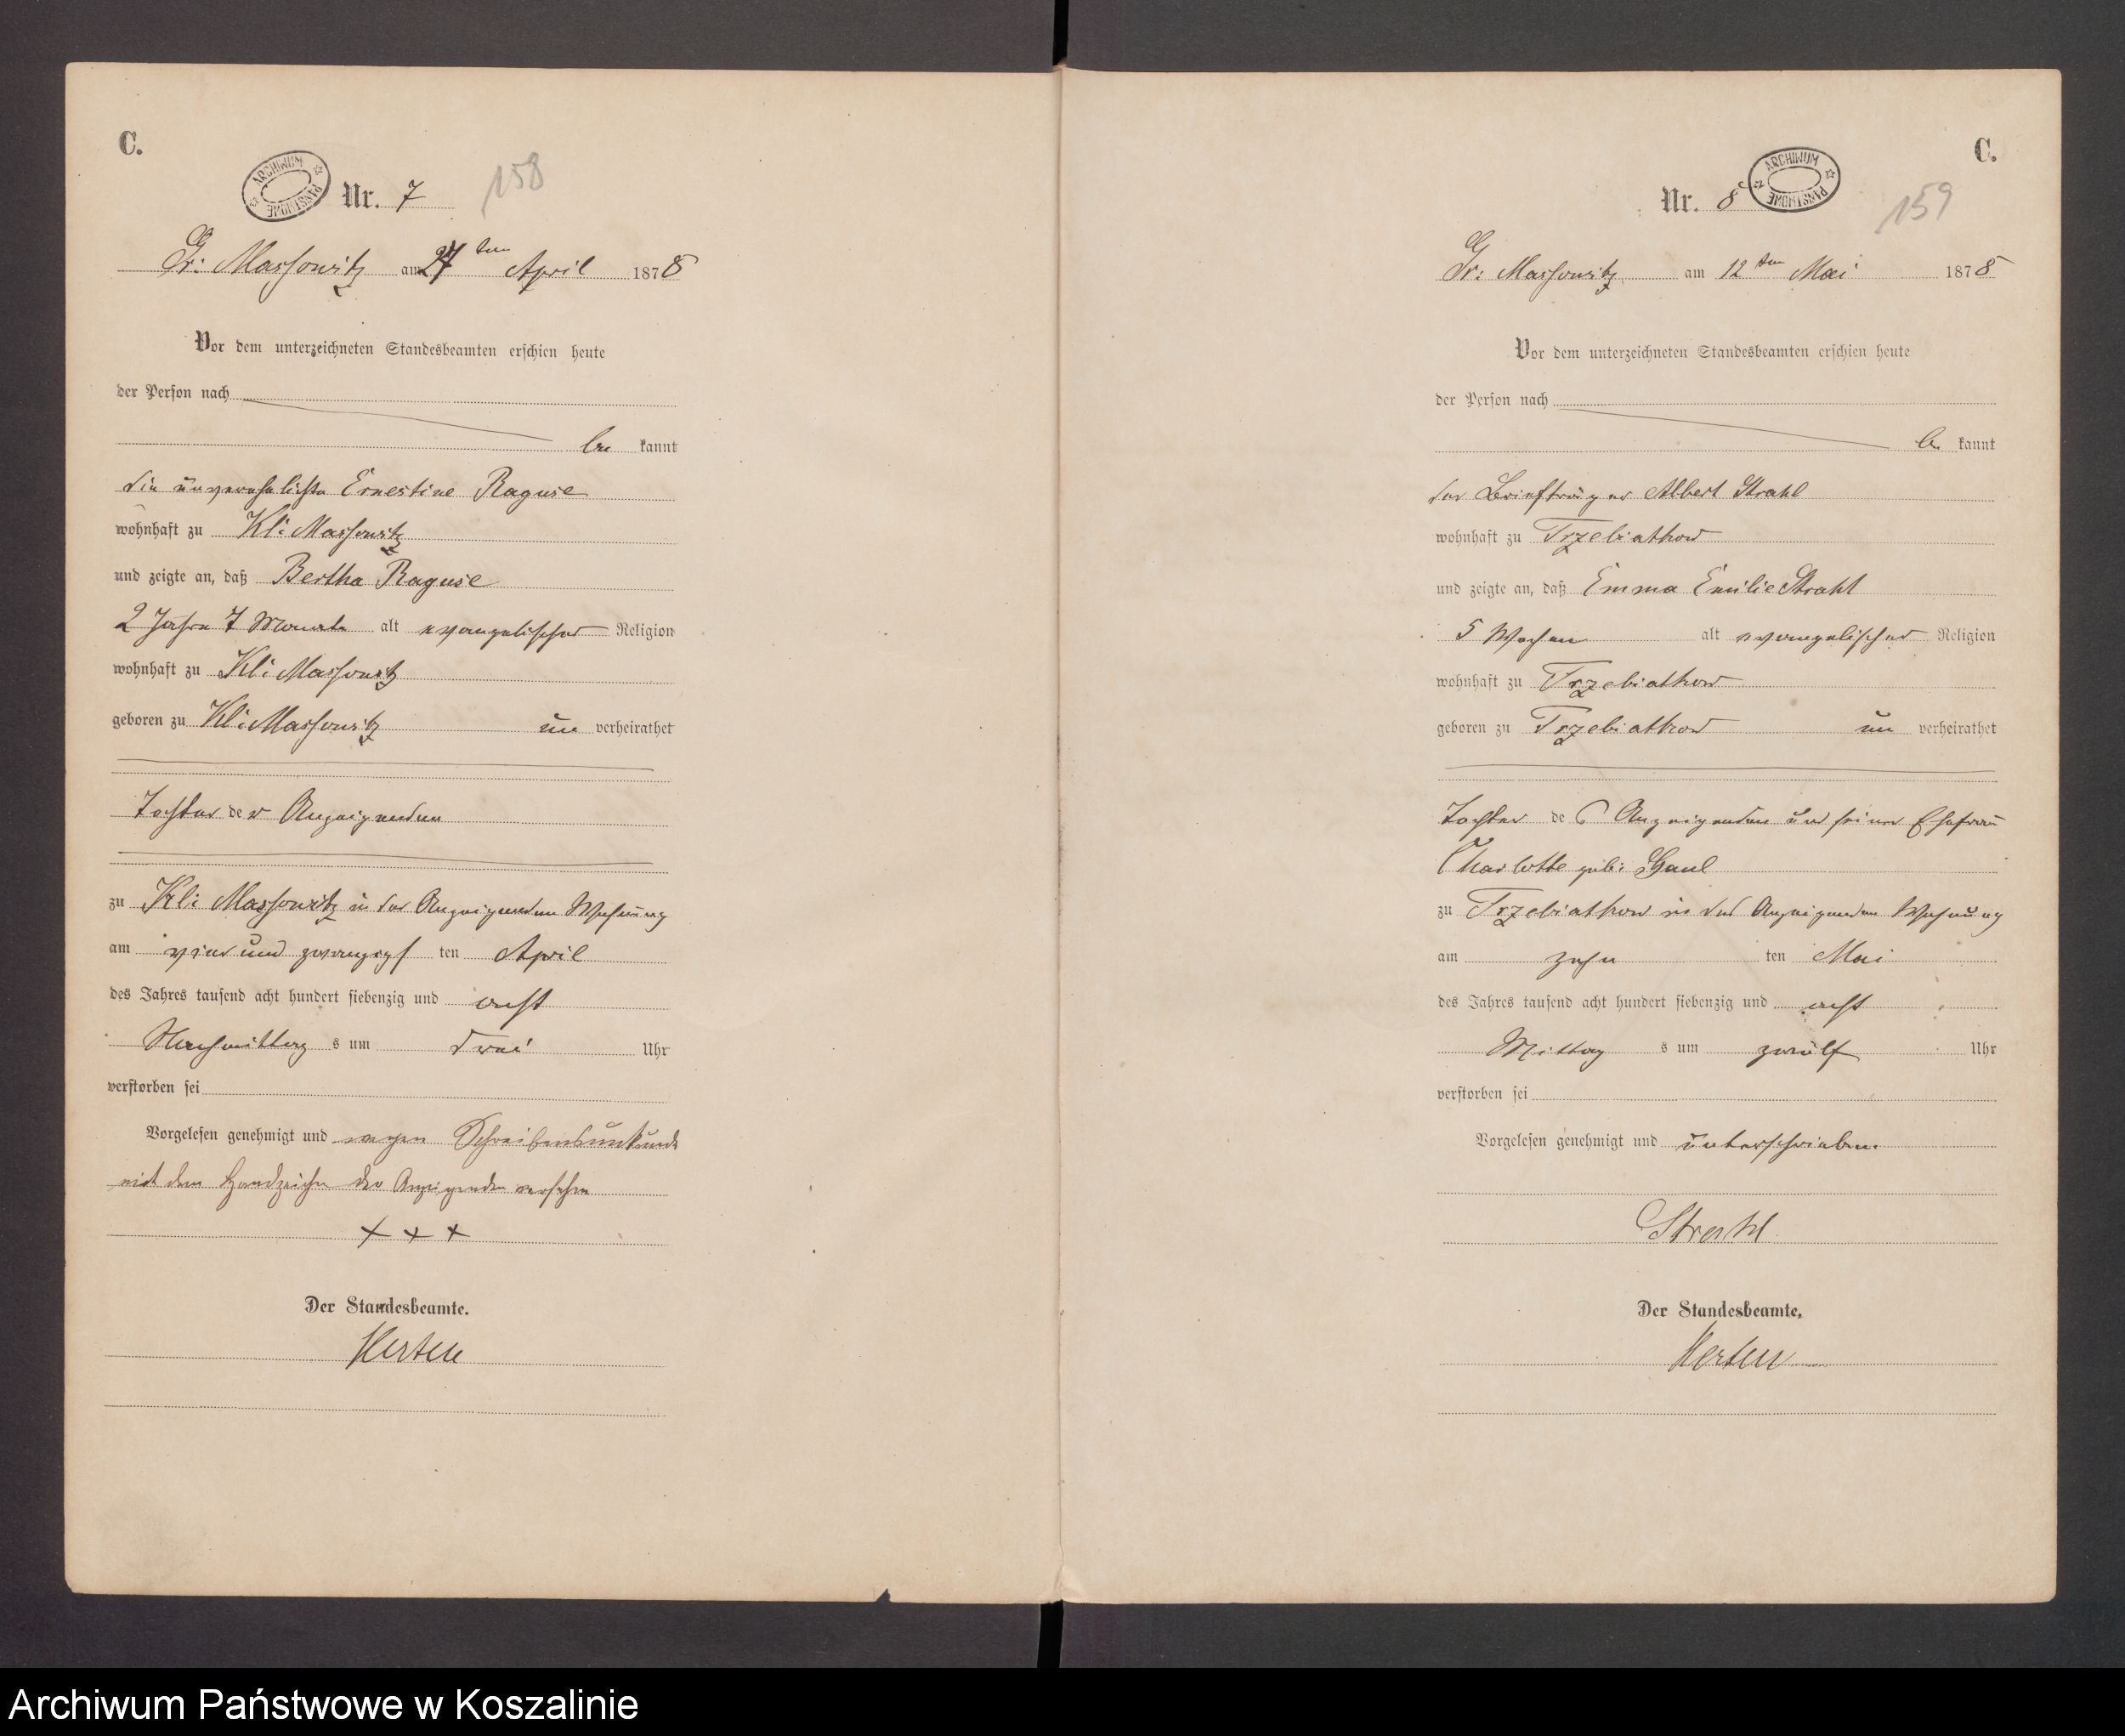 C.
ARCHIWUM PAŃSTWOWE
Nr. 7
158
Gr: Massowitz am 27ten April 1878
Vor dem unterzeichneten Standesbeamten erschien heute
der Person nach
be kannt
die unverehelichte Ernestine Raguse
wohnhaft zu Kl: Massowitz
und zeigte an, daß Bertha Raguse
2 Jahre 7 Monate alt evangelischer Religion
wohnhaft zu Kl: Massowitz
geboren zu Kl: Massowitz un verheirathet
Tochter der Anzeigenden
zu Kl: Massowitz in der Anzeigenden Wohnung
am vier und zwanzigs ten April
des Jahres tausend acht hundert siebenzig und acht
Nachmittag s um drei Uhr
verstorben sei
Vorgelesen genehmigt und wegen Schreibensunkunde
mit dem Handzeichen der Anzeigenden versehen
+ + +
Der Standesbeamte.
Herten
C.
ARCHIWUM PAŃSTWOWE
Nr. 8
159
Gr: Massowitz am 12ten Mai 1878
Vor dem unterzeichneten Standesbeamten erschien heute
der Person nach
be kannt
der Briefträger Albert Strahl
wohnhaft zu Trzebiatkow
und zeigte an, daß Emma Emilie Strahl
5 Wochen alt evangelischer Religion
wohnhaft zu Trzebiatkow
geboren zu Trzebiatkow un verheirathet
Tochter des Anzeigenden und seiner Ehefrau
Charlotte geb: Gaul
zu Trzebiatkow in des Anzeigenden Wohnung
am zehn ten Mai
des Jahres tausend acht hundert siebenzig und acht
Mittag s um zwölf Uhr
verstorben sei
Vorgelesen genehmigt und unterschrieben
Strahl
Der Standesbeamte.
Herten
Archiwum Państwowe w Koszalinie